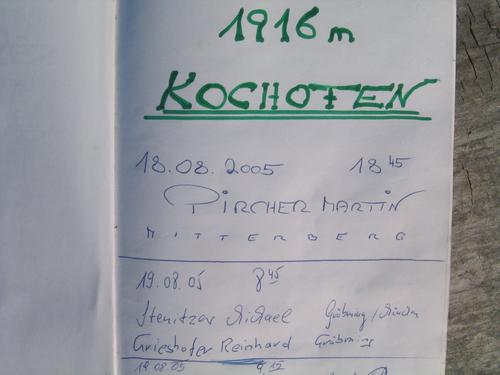 1916 m
KOCHOFEN
18.08.2005 18 45
PIRCHER MARTIN
MITTERBERG
19.08.05 8 45
Stenitzer Michael Gröbming /
Grieshofer Reinhard Gröbming
19.08.05 9 15